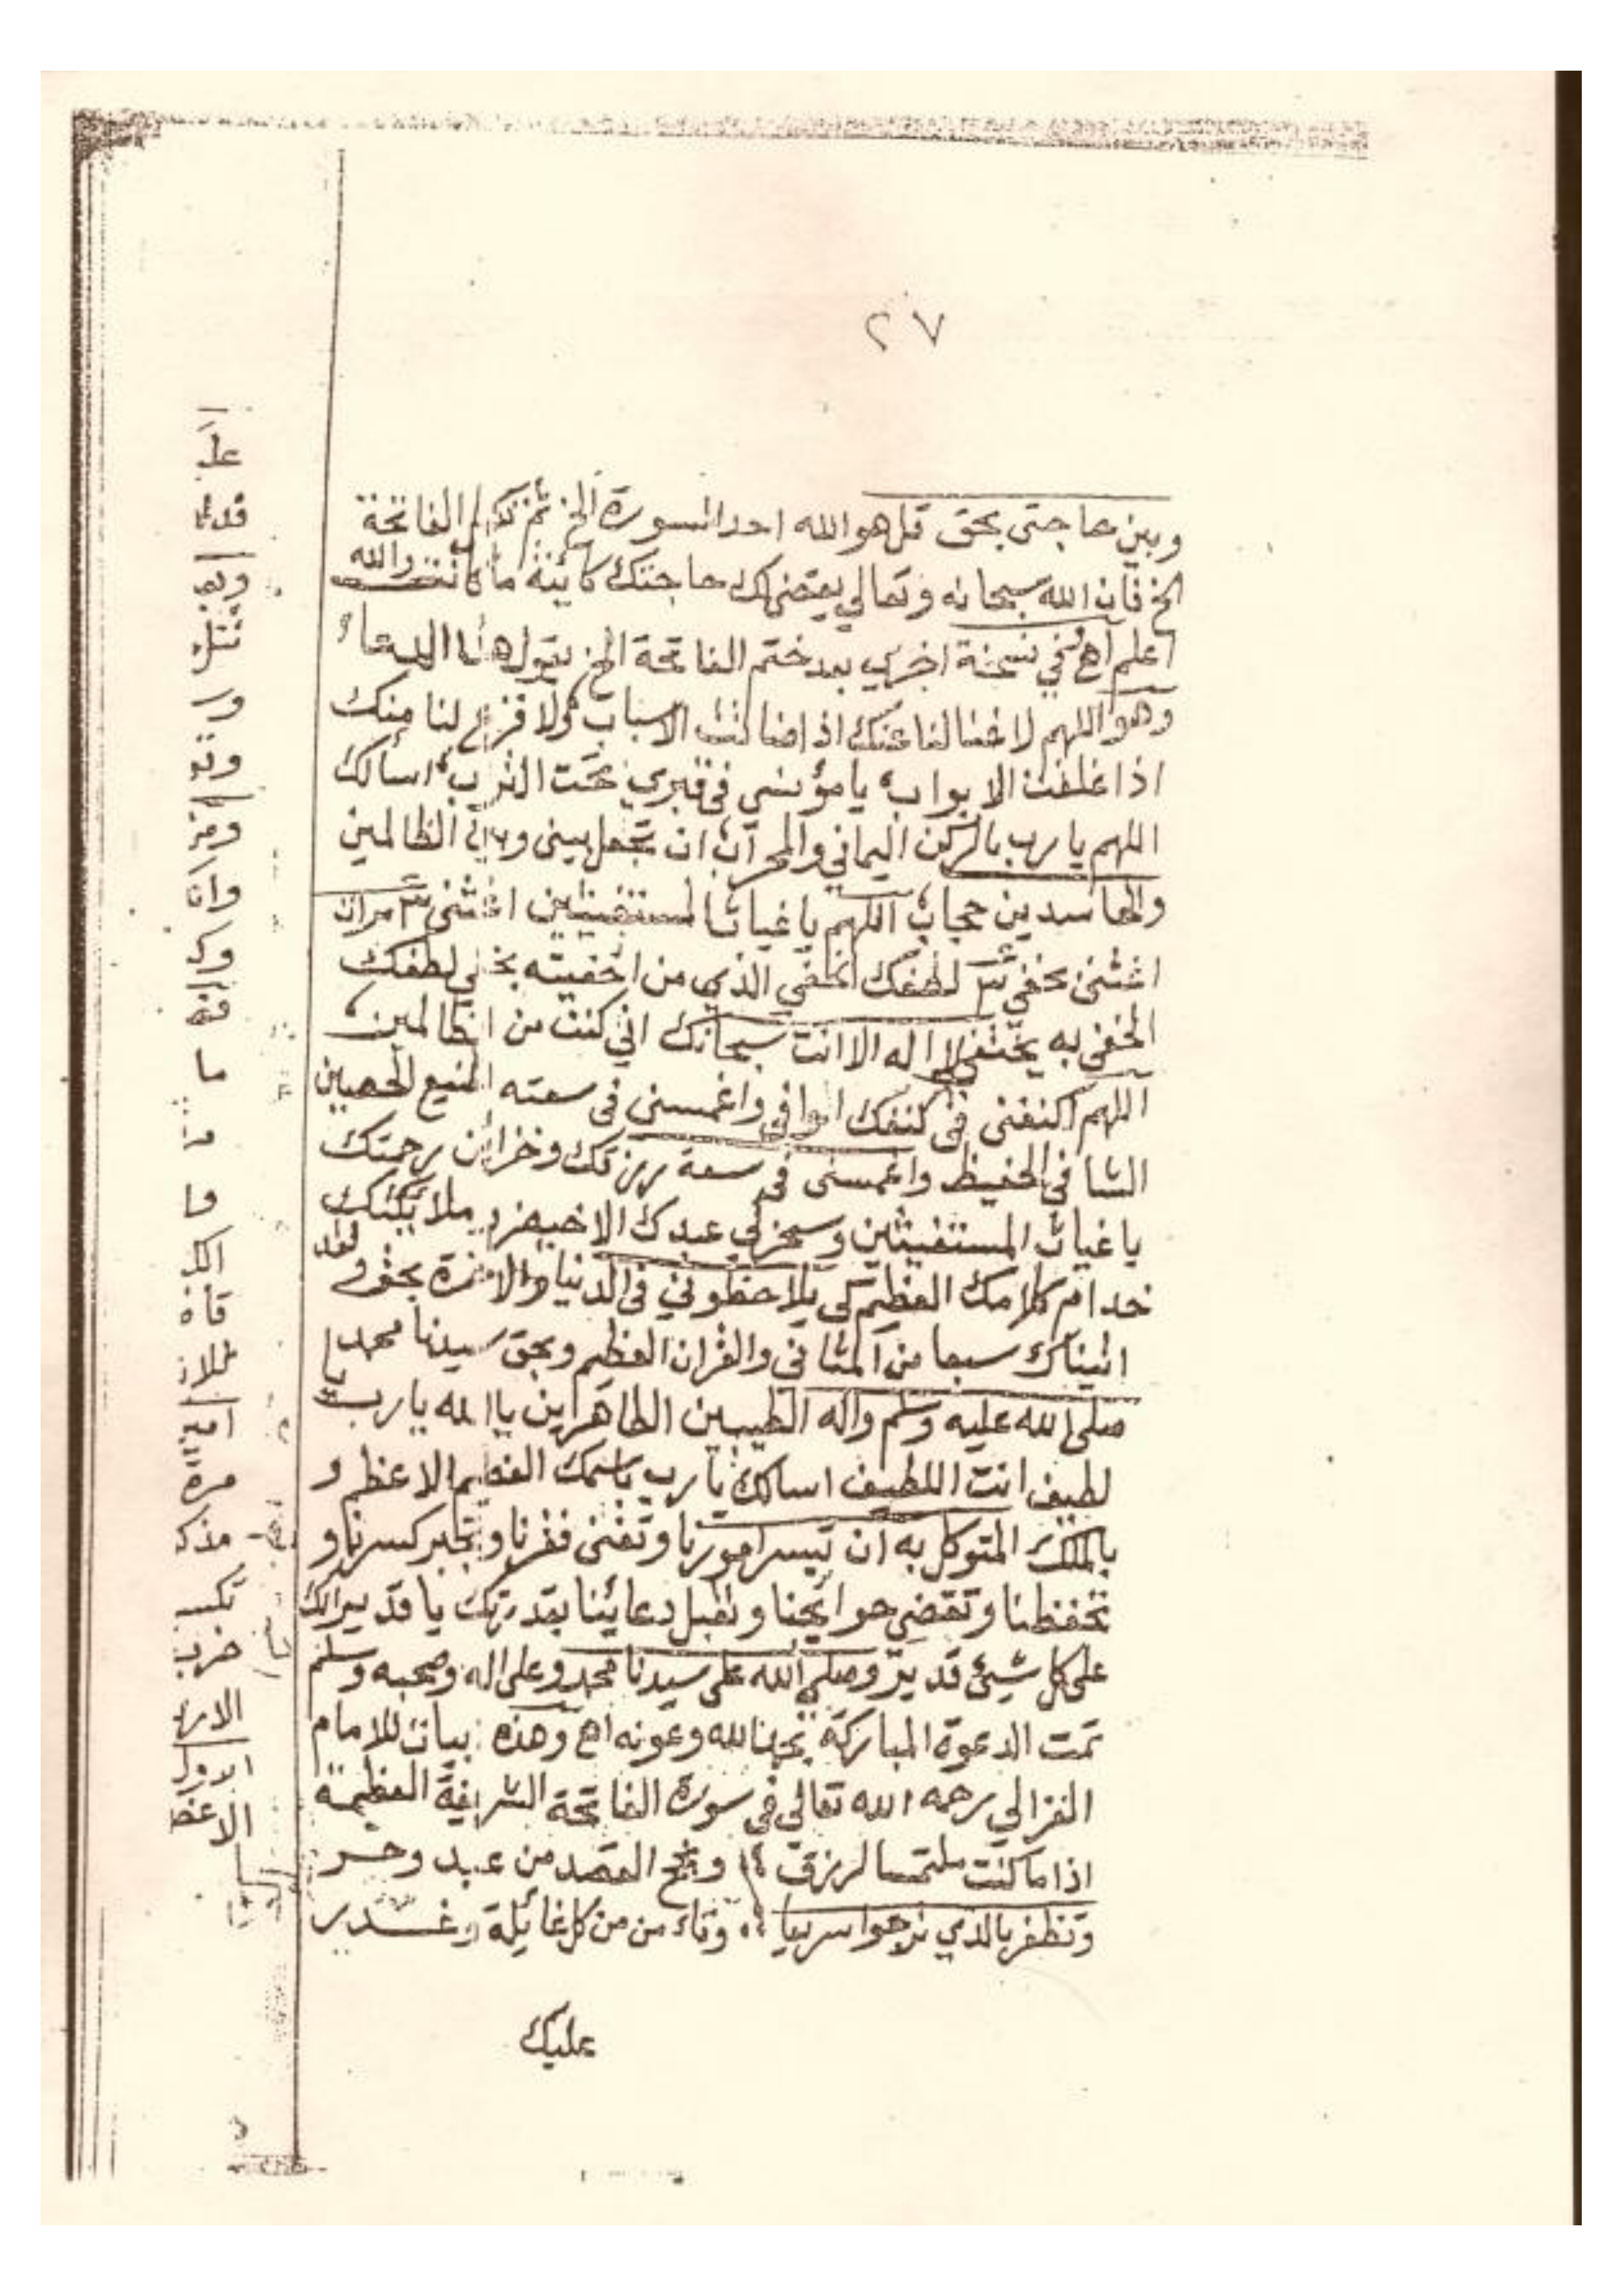 ٢٧
وبين حاجتى بحق قل هو الله احد السورة الخ ثم تكمل الفاتحة
الخ فان الله سبحانه وتعالي يقضي لك حاجتك كائنة ما كانت والله
اعلم اهـ وفي نسخة اخري بعد ختم الفاتحة الخ يقول هذا الدعاء
وهو اللهم لا غنا لنا عنك اذ اضاقت الاسباب ولا فزع لنا منك
اذا غلقت الابواب يا مؤنسي في قبري تحت التراب اسألك
اللهم يا رب بالركن اليماني والمحراب ان تجعل بيني وبين الظالمين
والحاسدين حجاب اللهم يا غياث المستغيثين اغثني ٣ مرات
اغثني بخفي ٣ لطفك الخفي الذي من اخفيته بخفي لطفك
الخفي به يختفي لا اله الا انت سبحانك اني كنت من الظالمين
اللهم اكنفني في كنفك الوافي واغمسني في سعته المنيع الحصين
الشافي الحفيظ واغمسني في سعة رزقك وخزائن رحمتك
يا غياث المستغيثين وسخر لي عبدك الاخيضر وملائكتك
خدام كلامك العظيم كي يلاحظوني في الدنيا والاخرة بحق ولقد
اتيناك سبعا من المثاني والقران العظيم وبحق سيدنا محمد
صلى الله عليه وسلم واله الطيبين الطاهرين يا الله يا رب يا
لطيف انت اللطيف اسالك يا رب باسمك العظيم الاعظم و
بالملك المتوكل به ان تيسر امورنا وتغني فقرنا وتجبر كسرنا و
تحفظنا وتقضي حوائجنا وتقبل دعائنا بقدرتك يا قدير انك
على كل شيئ قدير وصلى الله على سيدنا محمد وعلى اله وصحبه وسلم
تمت الدعوة المباركة بحمد الله وعونه اهـ وهذه ابيات للامام
الغزالي رحمه الله تعالي في سورة الفاتحة الشريفة العظيمة
اذا ما كنت ملتمسا لرزق ؛؛ ونجح القصد من عبد وحر
وتظفر بالذي ترجوا سريعا ؛؛ وتاءمن من كل غائلة وغدر
عليك
وا
وقع
وان
ما
ما
مرة
ضرب